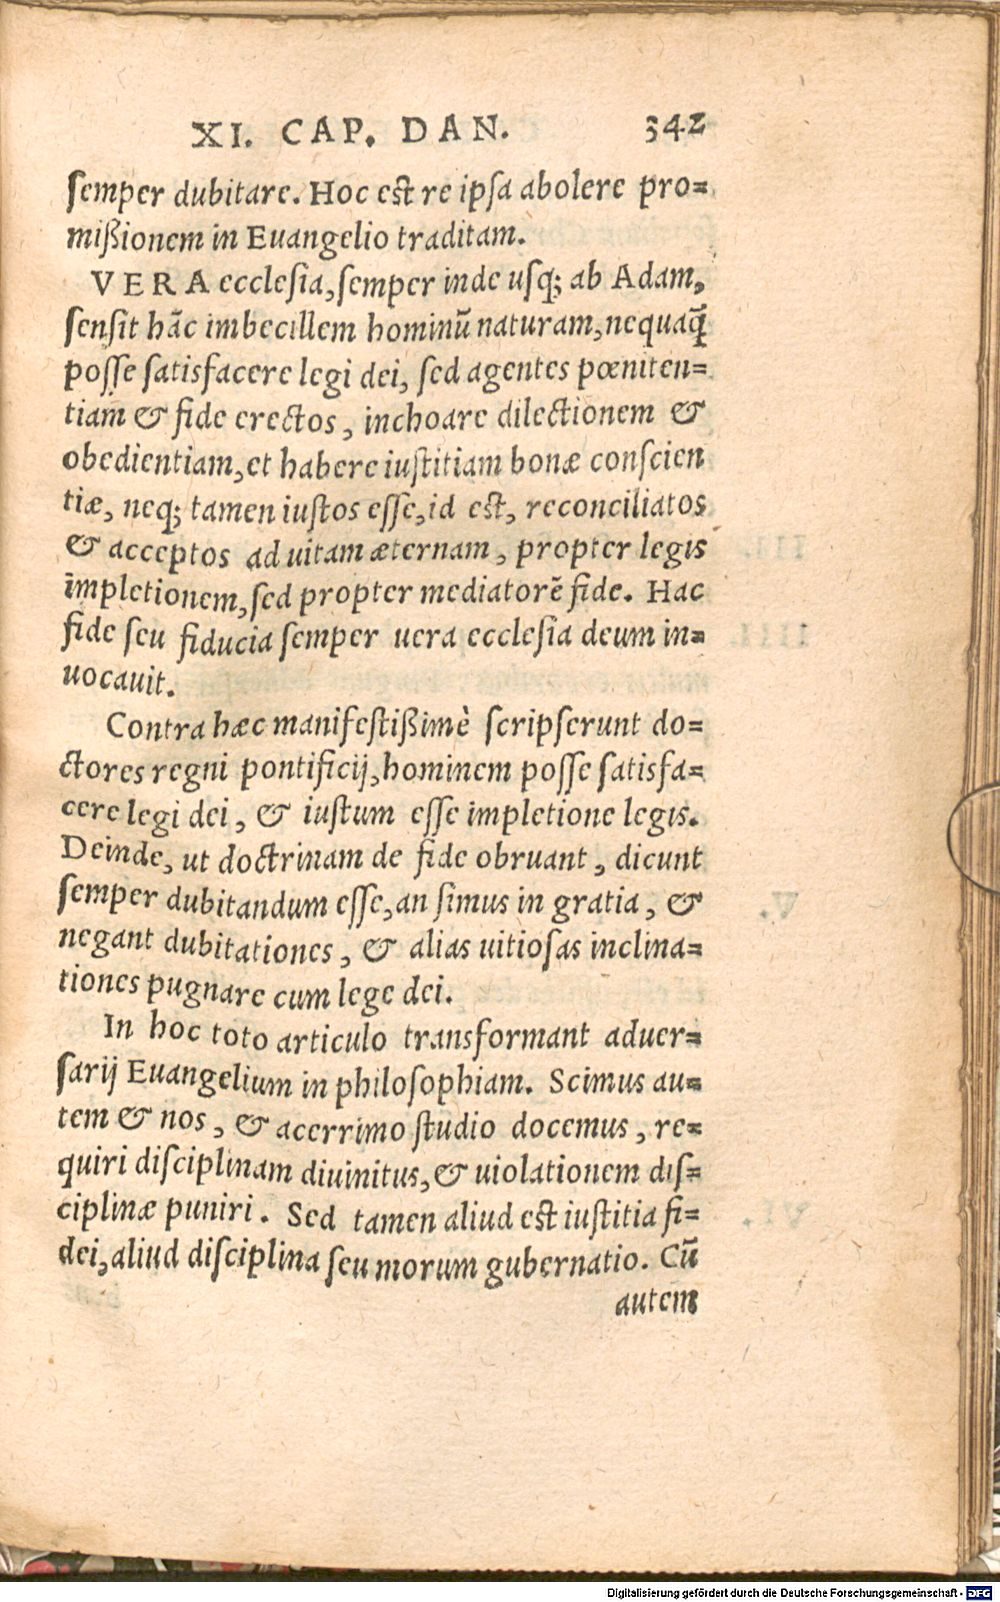 XI. CAP. DAN. 342
ſemper dubitare. Hoc eſt re ipſa abolere pro=
mißionem in Euangelio traditam.
VERA eccleſia, ſemper inde uſq; ab Adam,
ſenſit hãc imbecillem hominũ naturam, nequaq̃
poſſe ſatisfacere legi dei, ſed agentes pœniten=
tiam & fide erectos, inchoare dilectionem &
obedientiam, et habere iuſtitiam bonæ conſcien
tiæ, neq; tamen iuſtos eſſe, id eſt, reconciliatos
& acceptos ad uitam æternam, propter legis
impletionem, ſed propter mediatorẽ fide. Hac
fide ſeu fiducia ſemper uera eccleſia deum in=
uocauit.
Contra hæc manifeſtißimè ſcripſerunt do=
ctores regni pontificij, hominem poſſe ſatisfa=
cere legi dei, & iuſtum eſſe impletione legis.
Deinde, ut doctrinam de fide obruant, dicunt
ſemper dubitandum eſſe, an ſimus in gratia, &
negant dubitationes, & alias uitioſas inclina=
tiones pugnare cum lege dei.
In hoc toto articulo transformant aduer=
ſarij Euangelium in philoſophiam. Scimus au=
tem & nos, & acerrimo ſtudio docemus, re=
quiri diſciplinam diuinitus, & uiolationem diſ=
ciplinæ puniri. Sed tamen aliud eſt iuſtitia fi=
dei, aliud diſciplina ſeu morum gubernatio. Cũ
autem
Digitalisierung gefördert durch die Deutsche Forschungsgemeinschaft - DFG